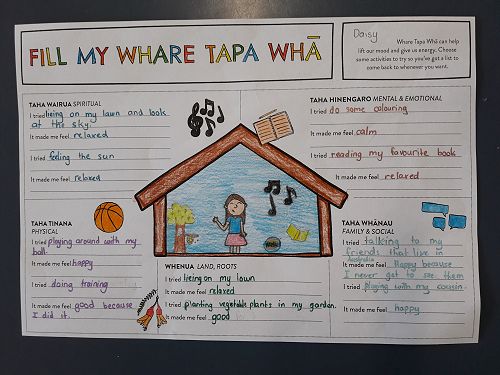 FILL MY WHARE TAPA WHĀ
Daisy
Whare Tapa Whā can help
lift our mood and give us energy. Choose
some activities to try so you've got a list to
come back to whenever you want.
TAHA WAIRUA SPIRITUAL
I tried lieing on my lawn and look
at the sky.
It made me feel relaxed
I tried feeling the sun
It made me feel relaxed
TAHA HINENGARO MENTAL & EMOTIONAL
I tried do some colouring
It made me feel calm
I tried reading my favourite book
It made me feel relaxed
TAHA TINANA
PHYSICAL
I tried playing around with my
ball.
It made me feel happy
I tried doing training
It made me feel good because
I did it.
WHENUA LAND, ROOTS
I tried lieing on my lawn
It made me feel relaxed
I tried planting vegetable plants in my garden.
It made me feel good
TAHA WHĀNAU
FAMILY & SOCIAL
I tried talking to my
friends that live in
Australia
It made me feel Happy because
I never get to see them
I tried playing with my cousin.
It made me feel happy